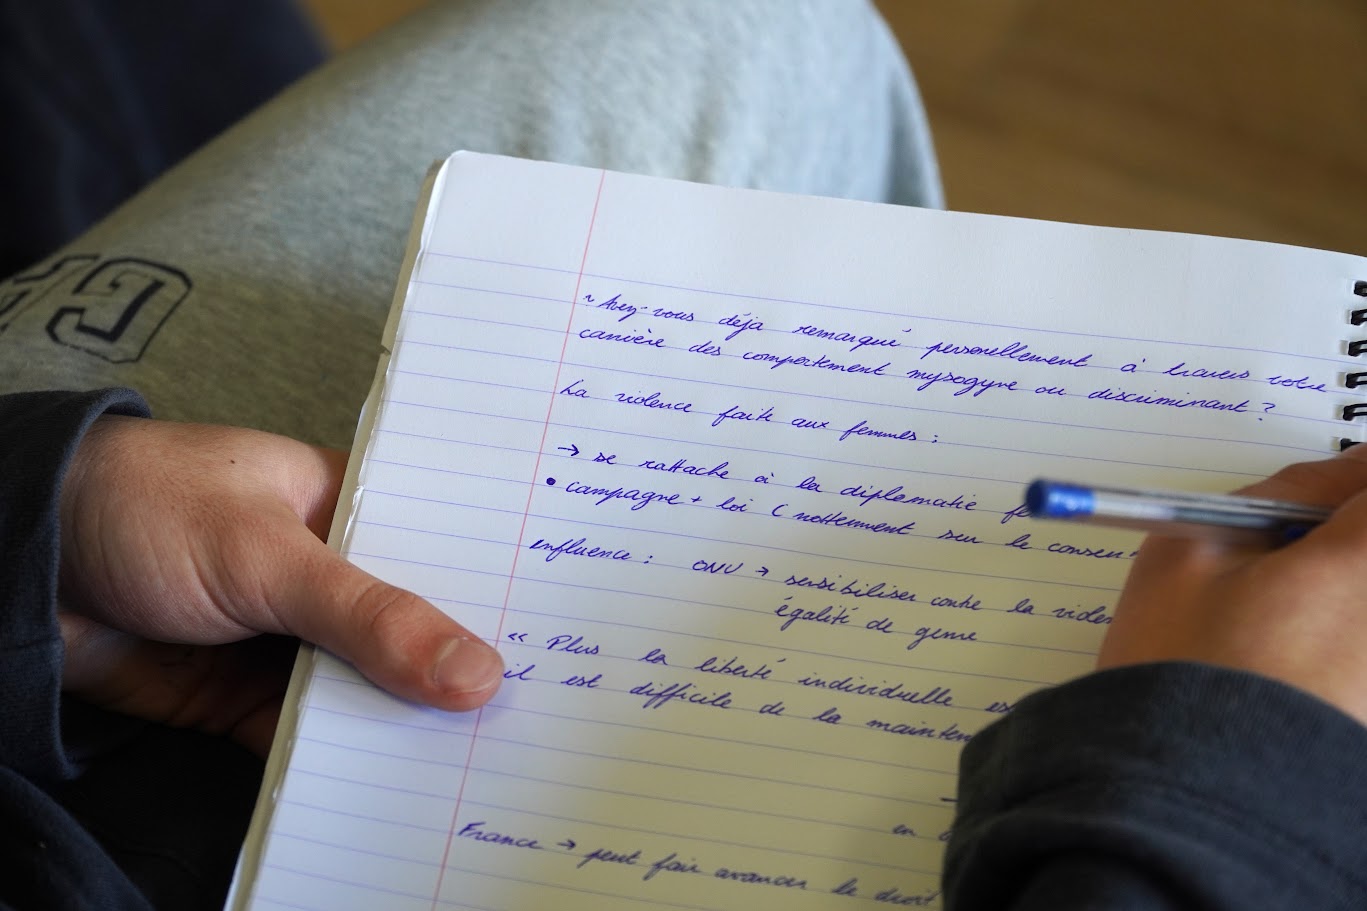 ~ Avez-vous déja remarqué personellement à travers votre
carrière des comportement mysogyne ou discriminant ?
La violence faite aux femmes :
→ se rattache à la diplomatie fe
• campagne + loi ( nottemment sur le consen
influence : ONU → sensibiliser contre la violen
égalité de genre
« Plus la liberté individuelle es
il est difficile de la mainten
en
France → peut fair avancer le droit